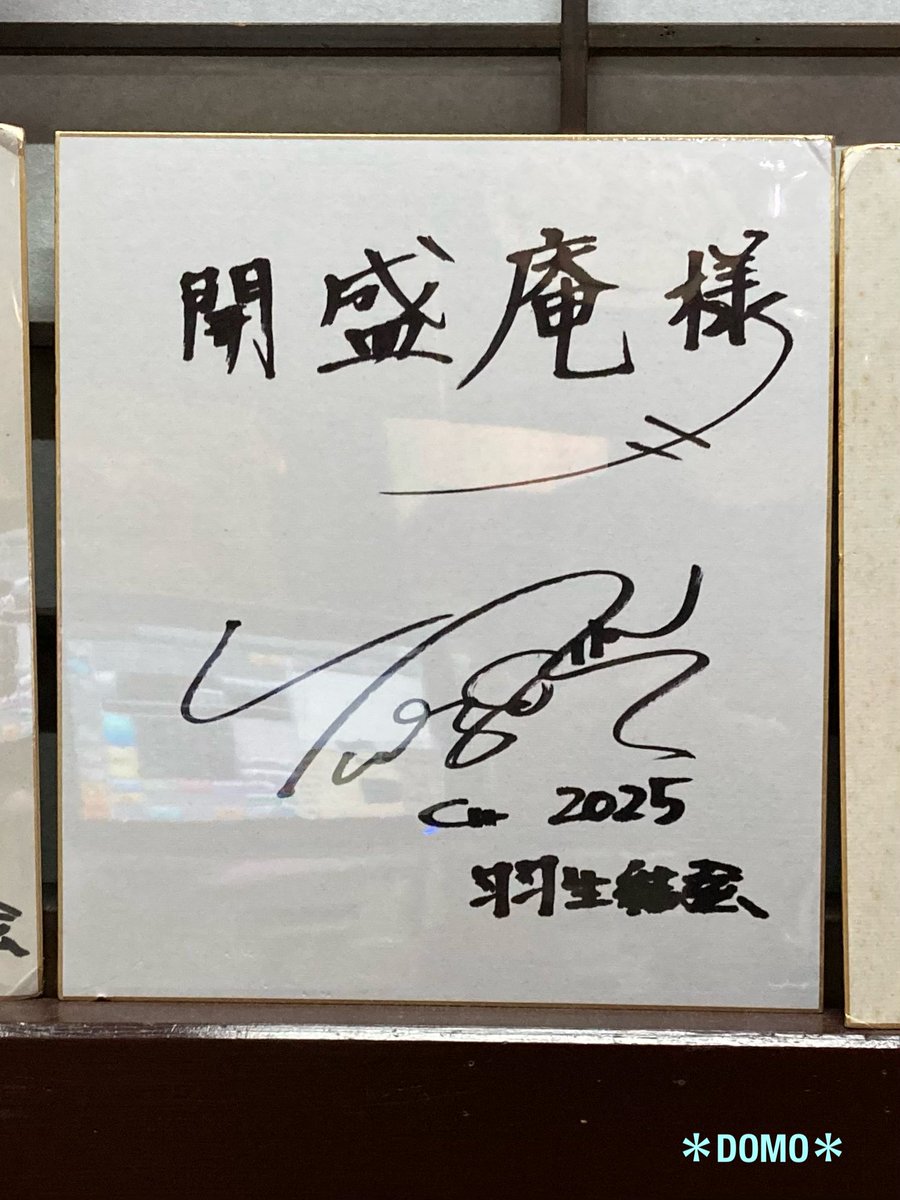 開盛庵様
2025
羽生結弦
*DOMO*